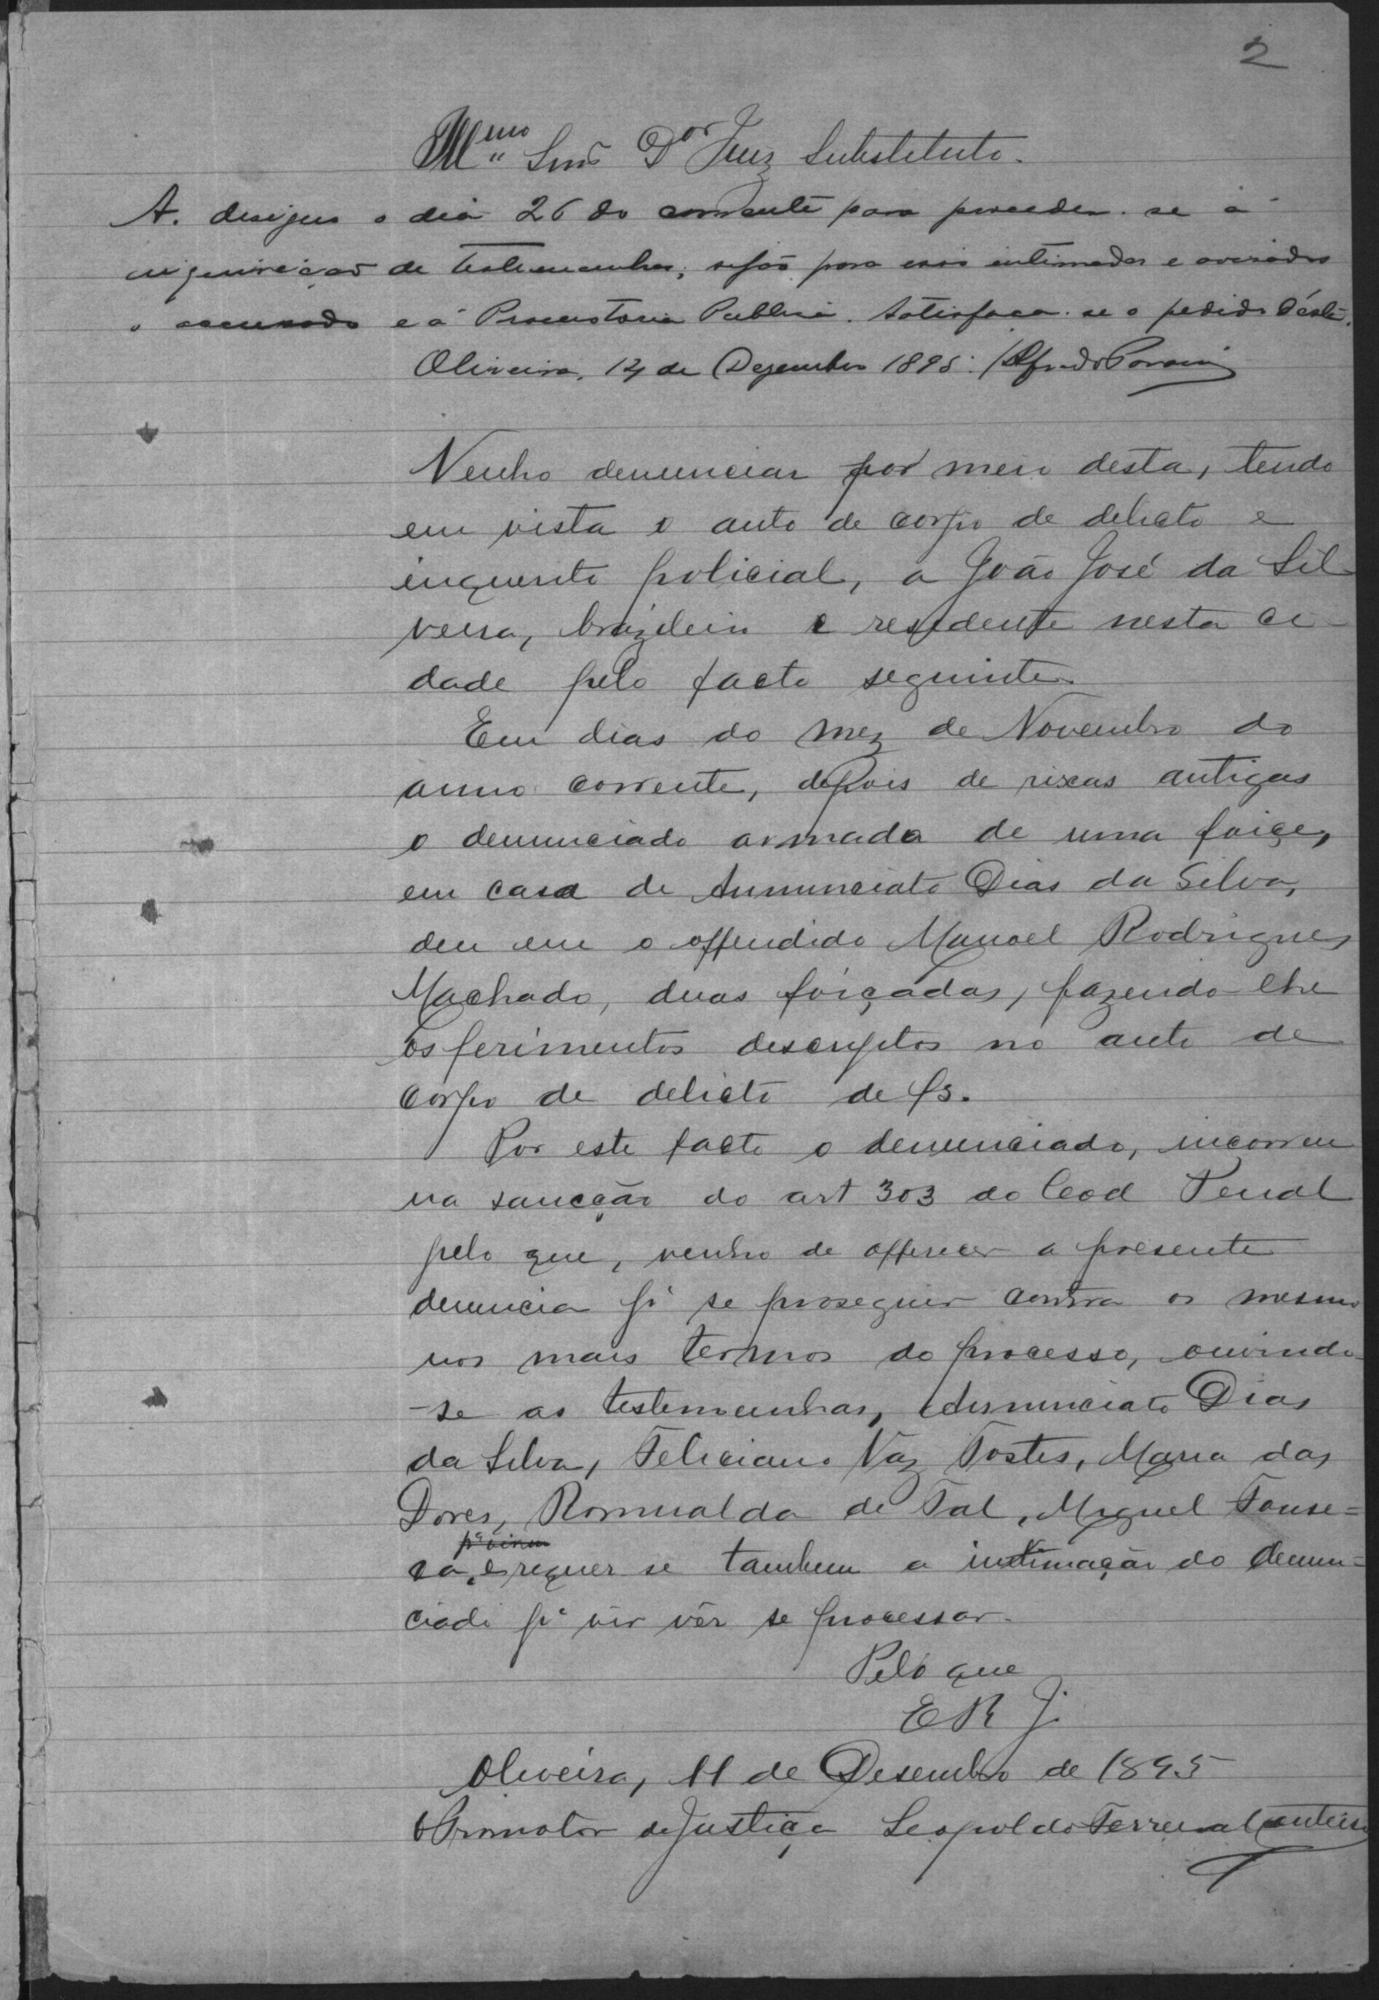 2
Mmo Snr Dor Juiz Substituto.
A. designo o dia 26 do corrente para proceder-se á
inquirição de testemunhas, sejão para isso intimadas e avisados
o accusado e a Promotoria Publica. Satisfaça-se o pedido
Oliveira, 14 de Dezembro 1895. Alfredo
Venho denunciar por meio desta, tendo
em vista o auto de corpo de delicto e
inquerito policial, a João José da Sil-
veira, brazileiro e residente nesta ci-
dade pelo facto seguinte.
Em dias do mez de Novembro do
anno corrente, depois de rixas antigas
o denunciado armado de uma foice,
em casa de Annunciato Dias da Silva,
deu em o offendido Manoel Rodrigues
Machado, duas foiçadas, fazendo-lhe
os ferimentos descriptos no auto de
corpo de delicto de fs.
Por este facto o denunciado, incorreu
na sancção do art 303 do Cod Penal
pelo que, venho de offerecer a presente
denuncia pª se proseguir contra o mesmo
nos mais termos do processo, ouvindo-
-se as testemunhas, Annunciato Dias
da Silva, Feliciano Vaz Tostes, Maria das
Dores, Romualda de Tal, Miguel Fonse=
ca, e requer se tambem a intimação do denun=
ciado pª vir vêr se processar.
Pelo que
E R J.
Oliveira, 11 de Desembro de 1895
O Promotor de Justiça Leopoldo Ferreira Monteiro